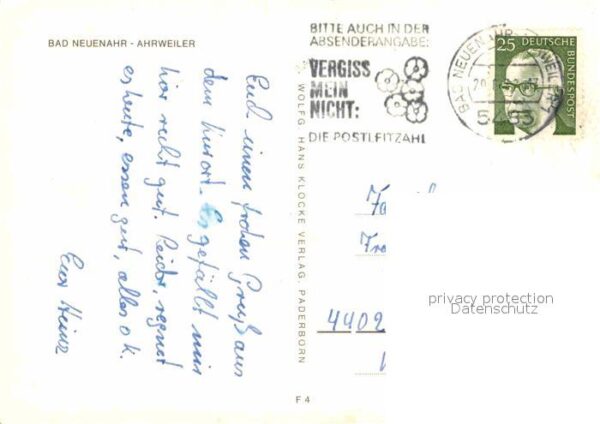 BAD NEUENAHR - AHRWEILER
Euch einen frohen Gruß aus
dem Kurort. Es gefällt mir
hier recht gut. Leider, regnet
es heute, essen gut, alles o.k.
Euer Heinz
WOLFG. HANS KLOCKE VERLAG, PADERBORN
F 4
BITTE AUCH IN DER
ABSENDERANGABE:
VERGISS
MEIN
NICHT:
DIE POSTLEITZAHL
BAD NEUENAHR
25 DEUTSCHE
BUNDESPOST
4402
privacy protection
Datenschutz